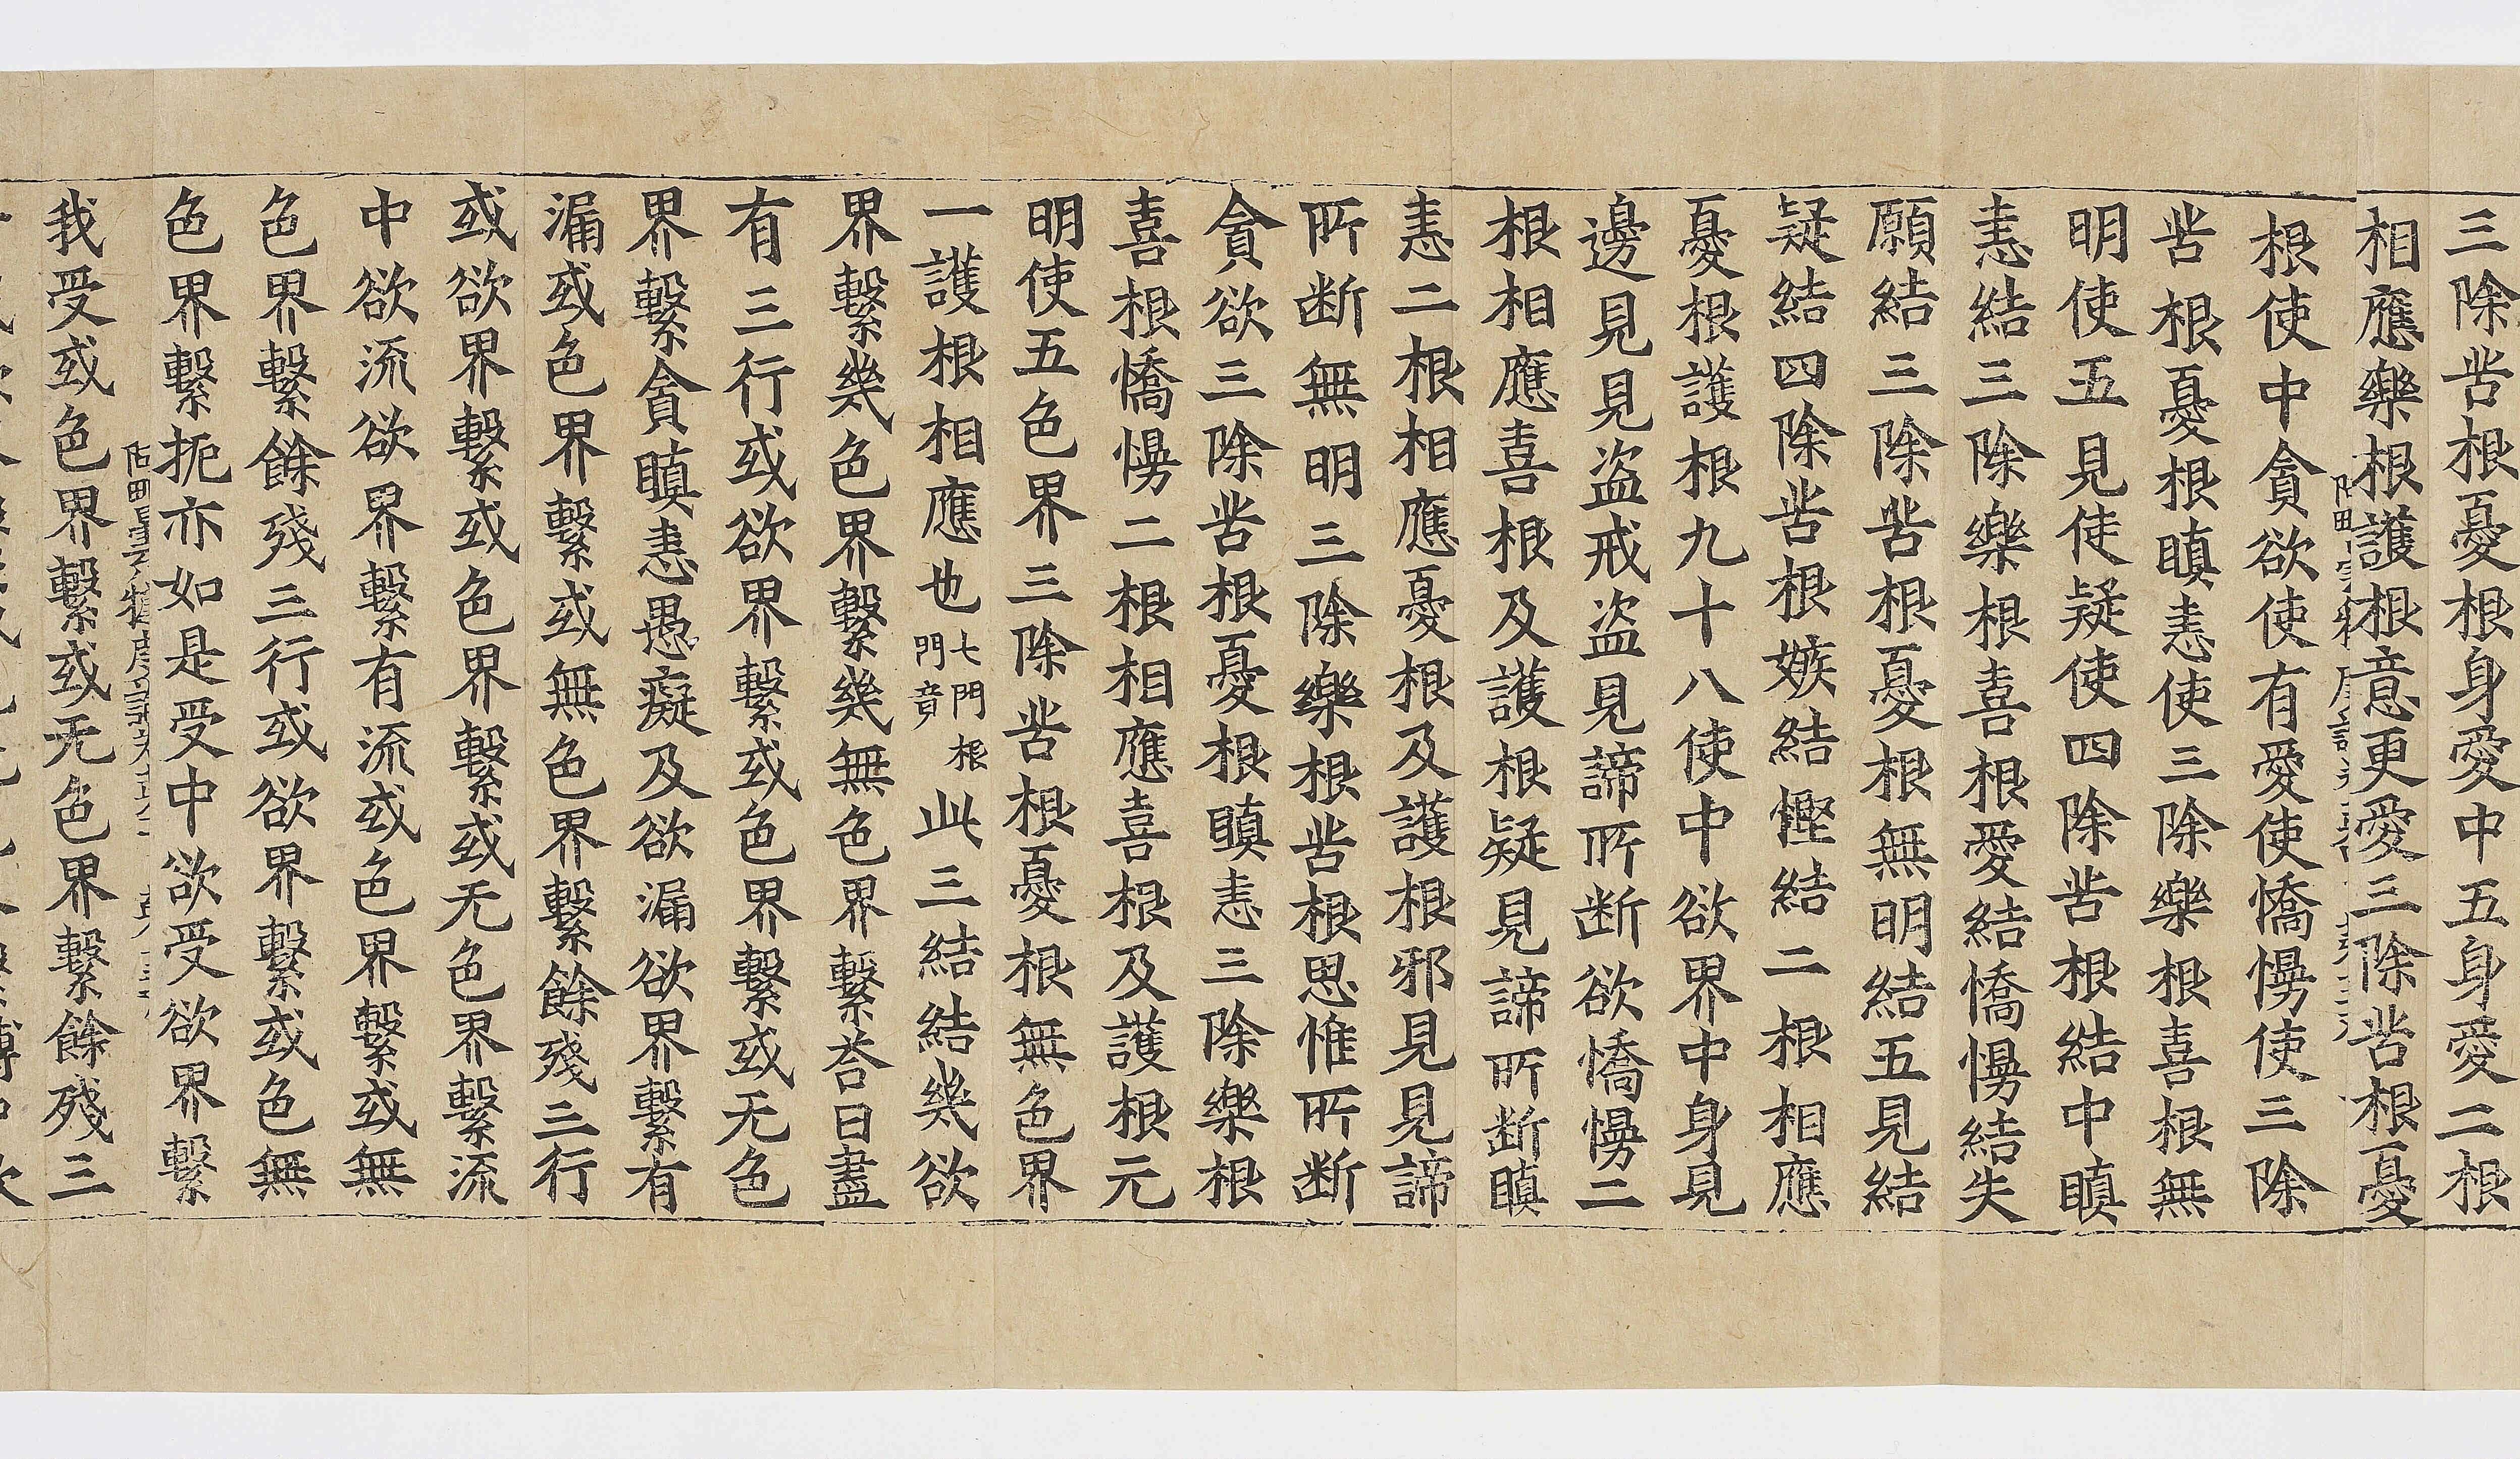 三除苦根憂根身愛中五身愛二根
相應樂根護根意更愛三除苦根憂
根使中貪欲使有愛使憍慢使三除
苦根憂根瞋恚使三除樂根喜根無
明使五見使疑使四除苦根結中瞋
恚結三除樂根喜根愛結憍慢結失
願結三除苦根憂根無明結五見結
疑結四除苦根嫉結慳結二根相應
憂根護根九十八使中欲界中身見
邊見見盜戒盜見諦所断欲憍慢二
根相應喜根及護根疑見諦所断瞋
恚二根相應憂根及護根邪見見諦
所断無明三除樂根苦根思惟所断
貪欲三除苦根憂根瞋恚三除樂根
喜根憍慢二根相應喜根及護根无
明使五色界三除苦根憂根無色界
一護根相應也七門根門竟此三結結幾欲
界繫幾色界繫幾無色界繫荅曰盡
有三行或欲界繫或色界繫或无色
界繫貪瞋恚愚癡及欲漏欲界繫有
漏或色界繫或無色界繫餘殘三行
或欲界繫或色界繫或无色界繫流
中欲流欲界繫有流或色界繫或無
色界繫餘殘三行或欲界繫或色無
色界繫扼亦如是受中欲受欲界繫
我受或色界繫或无色界繫餘殘三